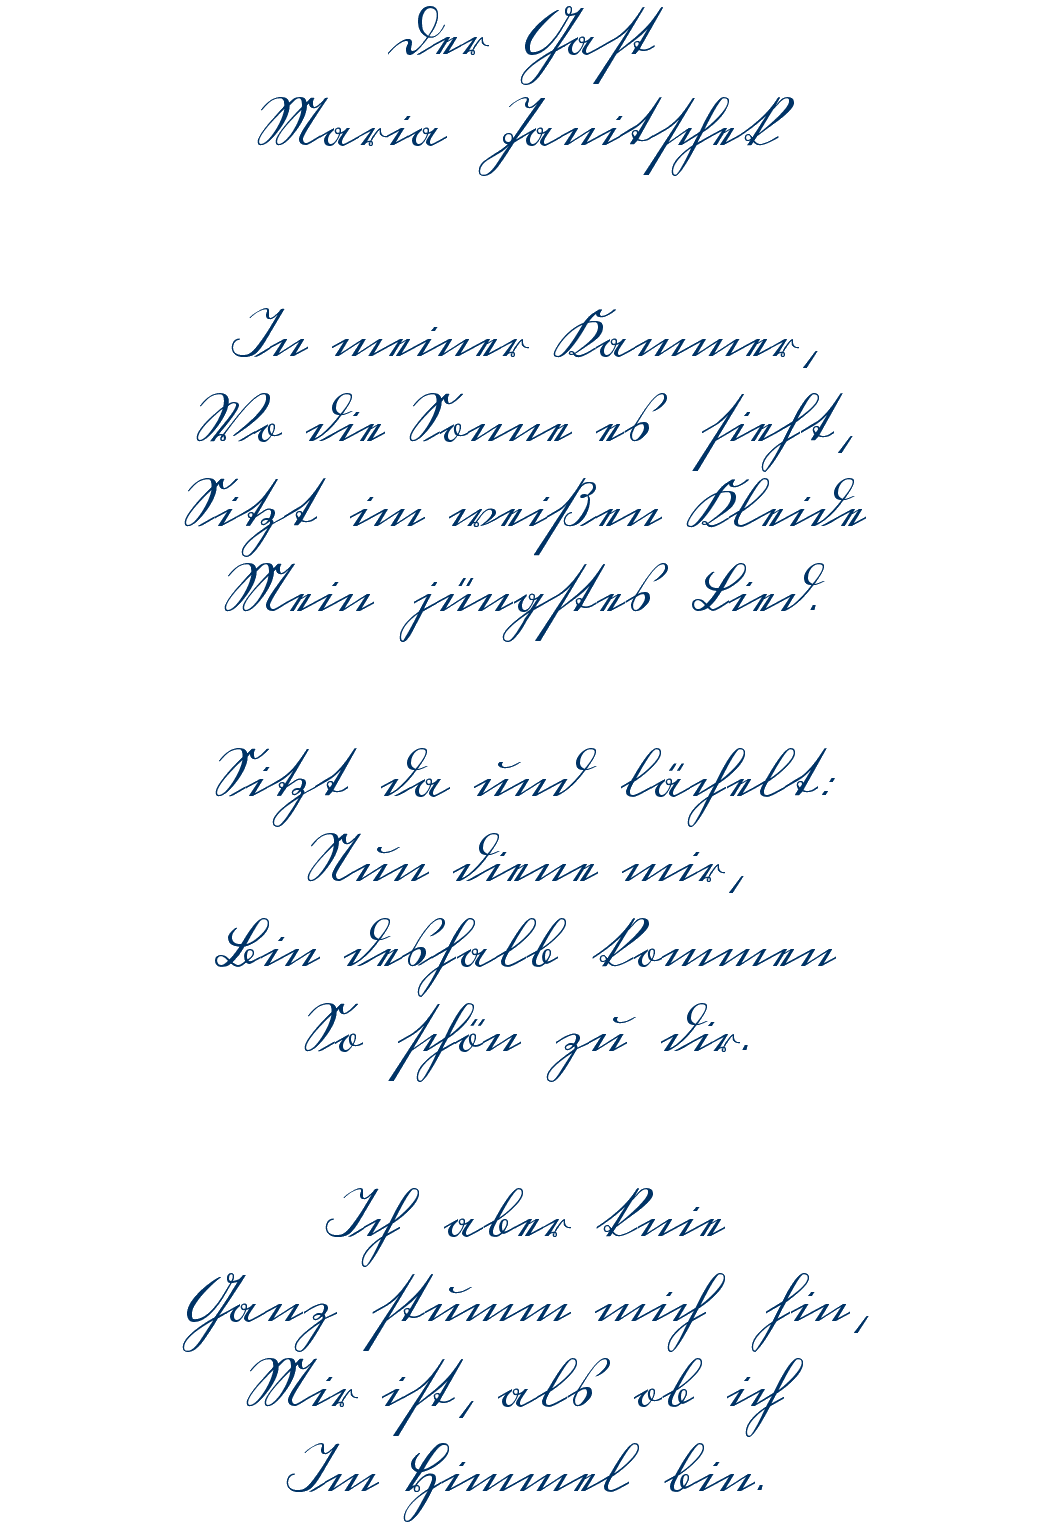 Der Gast
Maria Janitschek
In meiner Kammer,
Wo die Sonne es sieht,
Sitzt im weißen Kleide
Mein jüngstes Lied.
Sitzt da und lächelt:
Nun diene mir,
Bin deshalb kommen
So schön zu dir.
Ich aber knie
Ganz stumm mich hin,
Mir ist, als ob ich
Im Himmel bin.